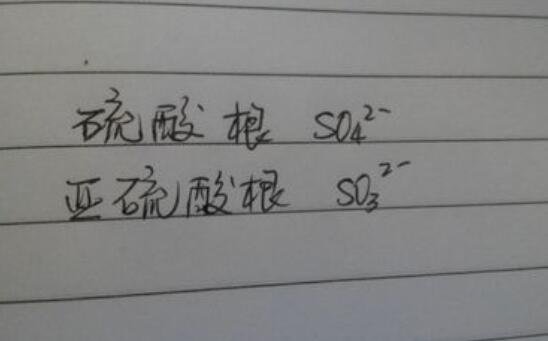 硫酸根 SO₄²⁻
亚硫酸根 SO₃²⁻